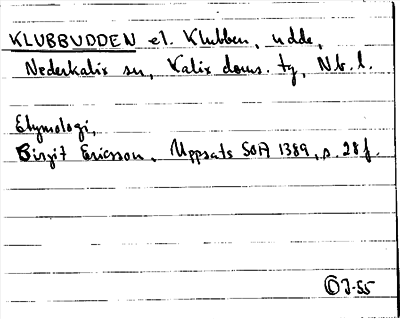 KLUBBUDDEN el. Klubben, udde,
Nederkalix sn, Kalix doms. tg, Nb. l.
Etymologi,
Birgit Ericsson. Uppsats SOFI 1389, s. 28 f.